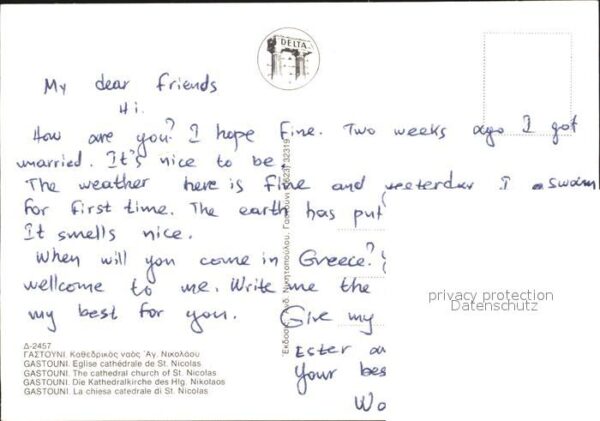 DELTA
My dear friends
Hi.
How are you? I hope fine. Two weeks ago I got
married. It's nice to be.
The weather here is fine and yesterday I swam
for first time. The earth has put
It smells nice.
When will you come in Greece?
wellcome to me. Write me the
my best for you. Give my
Ester
Your bes
Wo
privacy protection
Datenschutz
Δ-2457
ΓΑΣΤΟΥΝΙ. Καθεδρικὸς ναὸς Ἁγ. Νικολάου
GASTOUNI. Eglise cathédrale de St. Nicolas
GASTOUNI. The cathedral church of St. Nicolas
GASTOUNI. Die Kathedralkirche des Hlg. Nikolaos
GASTOUNI. La chiesa catedrale di St. Nicolas